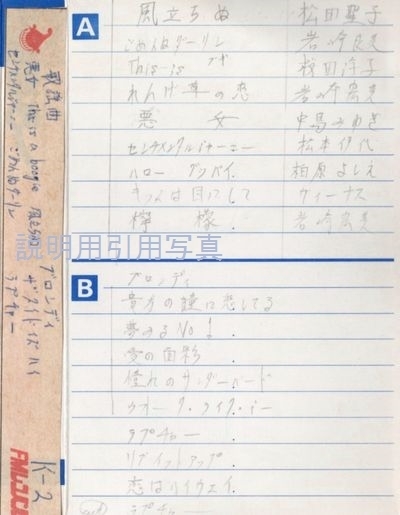 A
風立ちぬ 松田聖子
ごめんねダーリン 岩崎良美
This is ブギ 桜田淳子
れんげ草の恋 岩崎宏美
悪女 中島みゆき
センチメンタルジャーニー 松本伊代
ハローグッバイ 柏原よしえ
きつつは目にして ヴィーナス
檸檬 岩崎宏美
説明用引用写真
B
ブロンディ
貴方の瞳に恋してる
夢みるNo1
愛の面影
憧れのサンダーバード
ウオーク・ライク・ミー
ラプチャー
リブイットアップ
恋はリイウェイ
ラプチャー
歌謡曲
悪女 This is a boogie 風立ちぬ
センチメンタルジャーニー ごめんねダーリン
ブロンディ
ザ タイド・イズ ハイ
ラプチャー
K-2